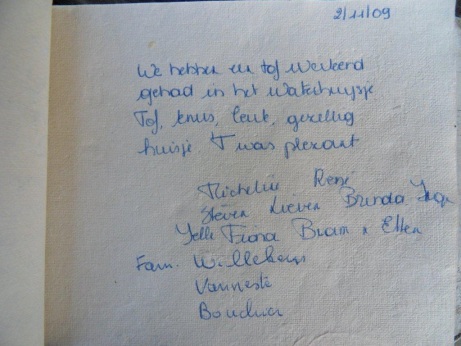 2/11/09
We hebben een tof weekend
gehad in het waterhuysje
Tof, knus, leuk, gezellig
huisje. 't was plezant
René
Steven Lieven Brenda
Jelle Fiona Bram + Ellen
Fam.
Vanneste